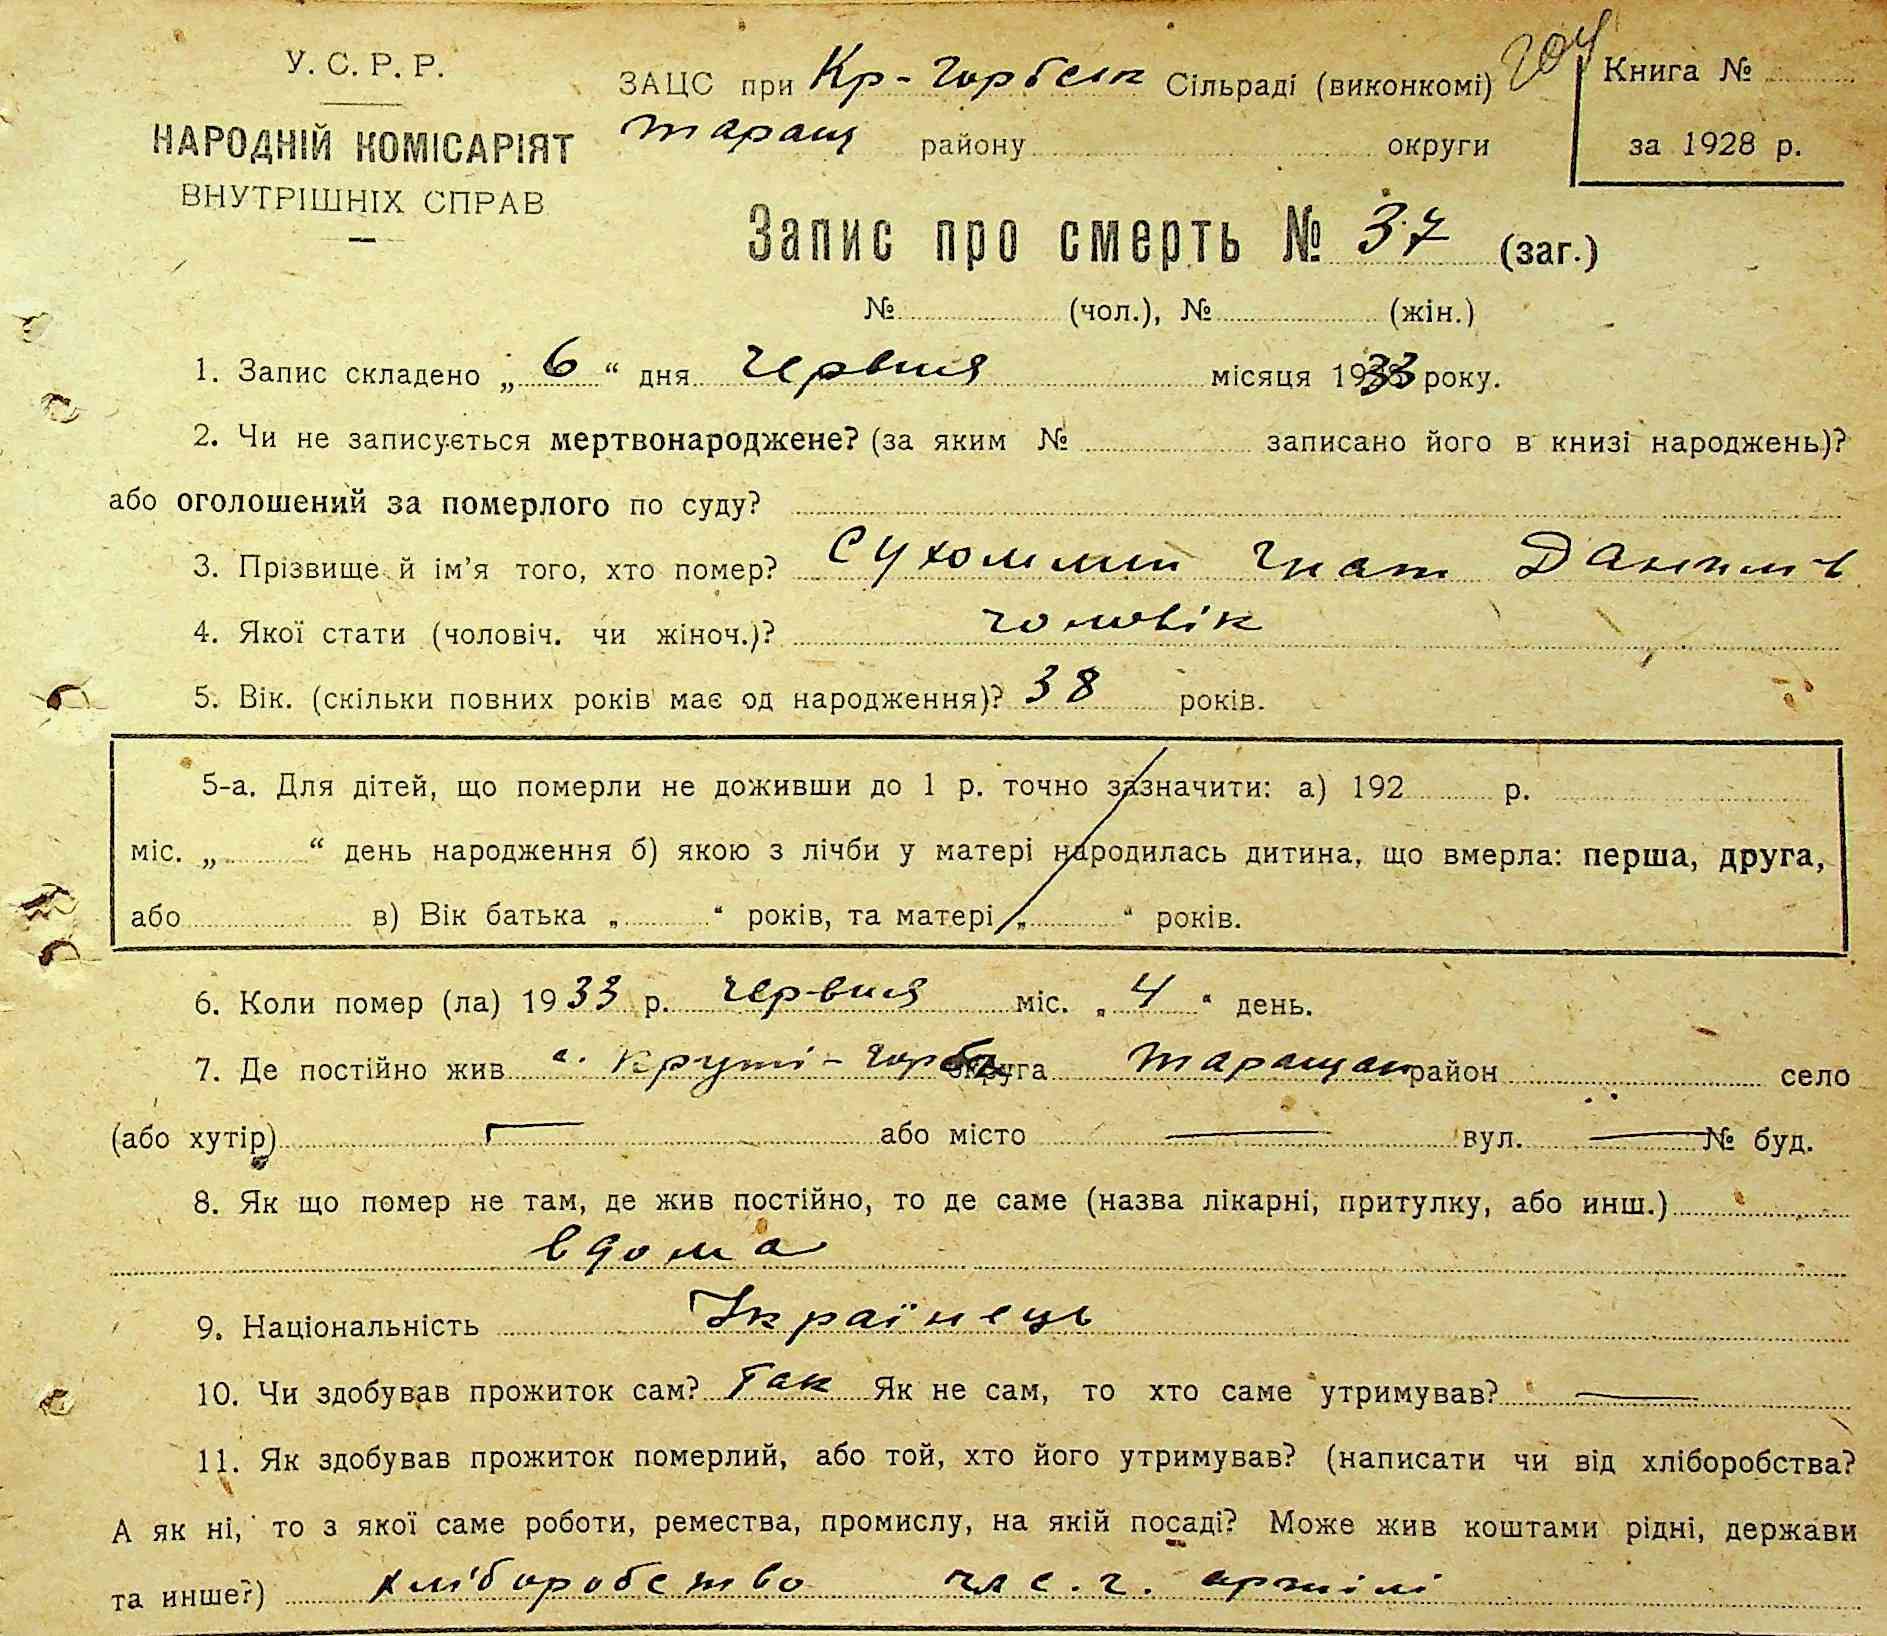 У. С. Р. Р.
НАРОДНІЙ КОМІСАРІЯТ
ВНУТРІШНІХ СПРАВ
ЗАЦС при Кр-Горбськ Сільраді (виконкомі)
Таращ району округи
204
Книга №
за 1928 р.
Запис про смерть № 37 (заг.)
№ (чол.), № (жін.)
1. Запис складено „ 6 “ дня Червня місяця 1933 року.
2. Чи не записується мертвонароджене? (за яким № записано його в книзі народжень)?
або оголошений за померлого по суду?
3. Прізвище й ім’я того, хто помер? Сухомлин Гнат Данилів
4. Якої стати (чоловіч. чи жіноч.)? чоловік
5. Вік. (скільки повних років має од народження)? 38 років.
5-а. Для дітей, що померли не доживши до 1 р. точно зазначити: а) 192 р.
міс. „ “ день народження б) якою з лічби у матері народилась дитина, що вмерла: перша, друга,
або в) Вік батька „ “ років, та матері „ “ років.
6. Коли помер (ла) 1933 р. червня міс. „ 4 “ день.
7. Де постійно жив с. Круті-Горби округа Таращан район село
(або хутір) — або місто — вул. — № буд.
8. Як що помер не там, де жив постійно, то де саме (назва лікарні, притулку, або инш.)
вдома
9. Національність Українець
10. Чи здобував прожиток сам? Так Як не сам, то хто саме утримував? —
11. Як здобував прожиток померлий, або той, хто його утримував? (написати чи від хліборобства?
А як ні, то з якої саме роботи, ремества, промислу, на якій посаді? Може жив коштами рідні, держави
та инше?) хліборобство чл с. г. артілі